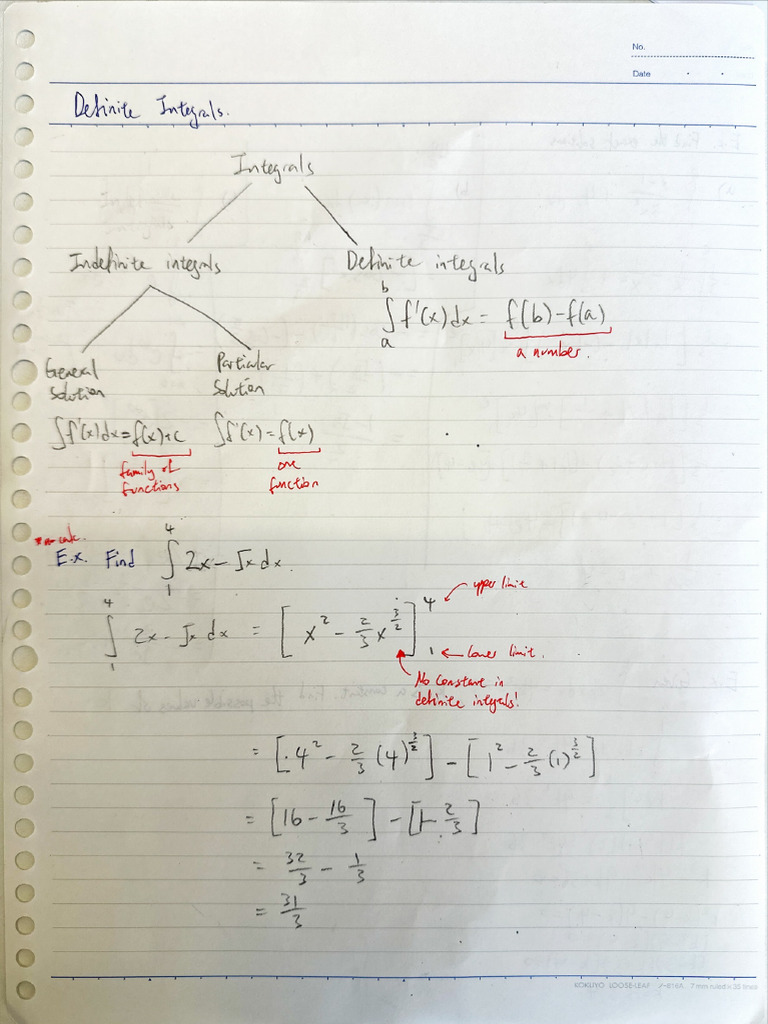 No.
Date
Definite Integrals.
Integrals
Indefinite integrals
Definite integrals
∫_a^b f'(x) dx = f(b) - f(a)
a number.
General Solution
Particular Solution
∫f'(x) dx = f(x) + c
∫f'(x) = f(x)
family of functions
one function
*no calc.
E.x. Find ∫_1^4 2x - √x dx.
∫_1^4 2x - √x dx = [x^2 - 2/3 x^(3/2)]_1^4
upper limit
lower limit.
No constant in
definite integrals!
= [4^2 - 2/3 (4)^(3/2)] - [1^2 - 2/3 (1)^(3/2)]
= [16 - 16/3] - [1 - 2/3]
= 32/3 - 1/3
= 31/3
KOKUYO LOOSE-LEAF 7 mm ruled × 35 lines